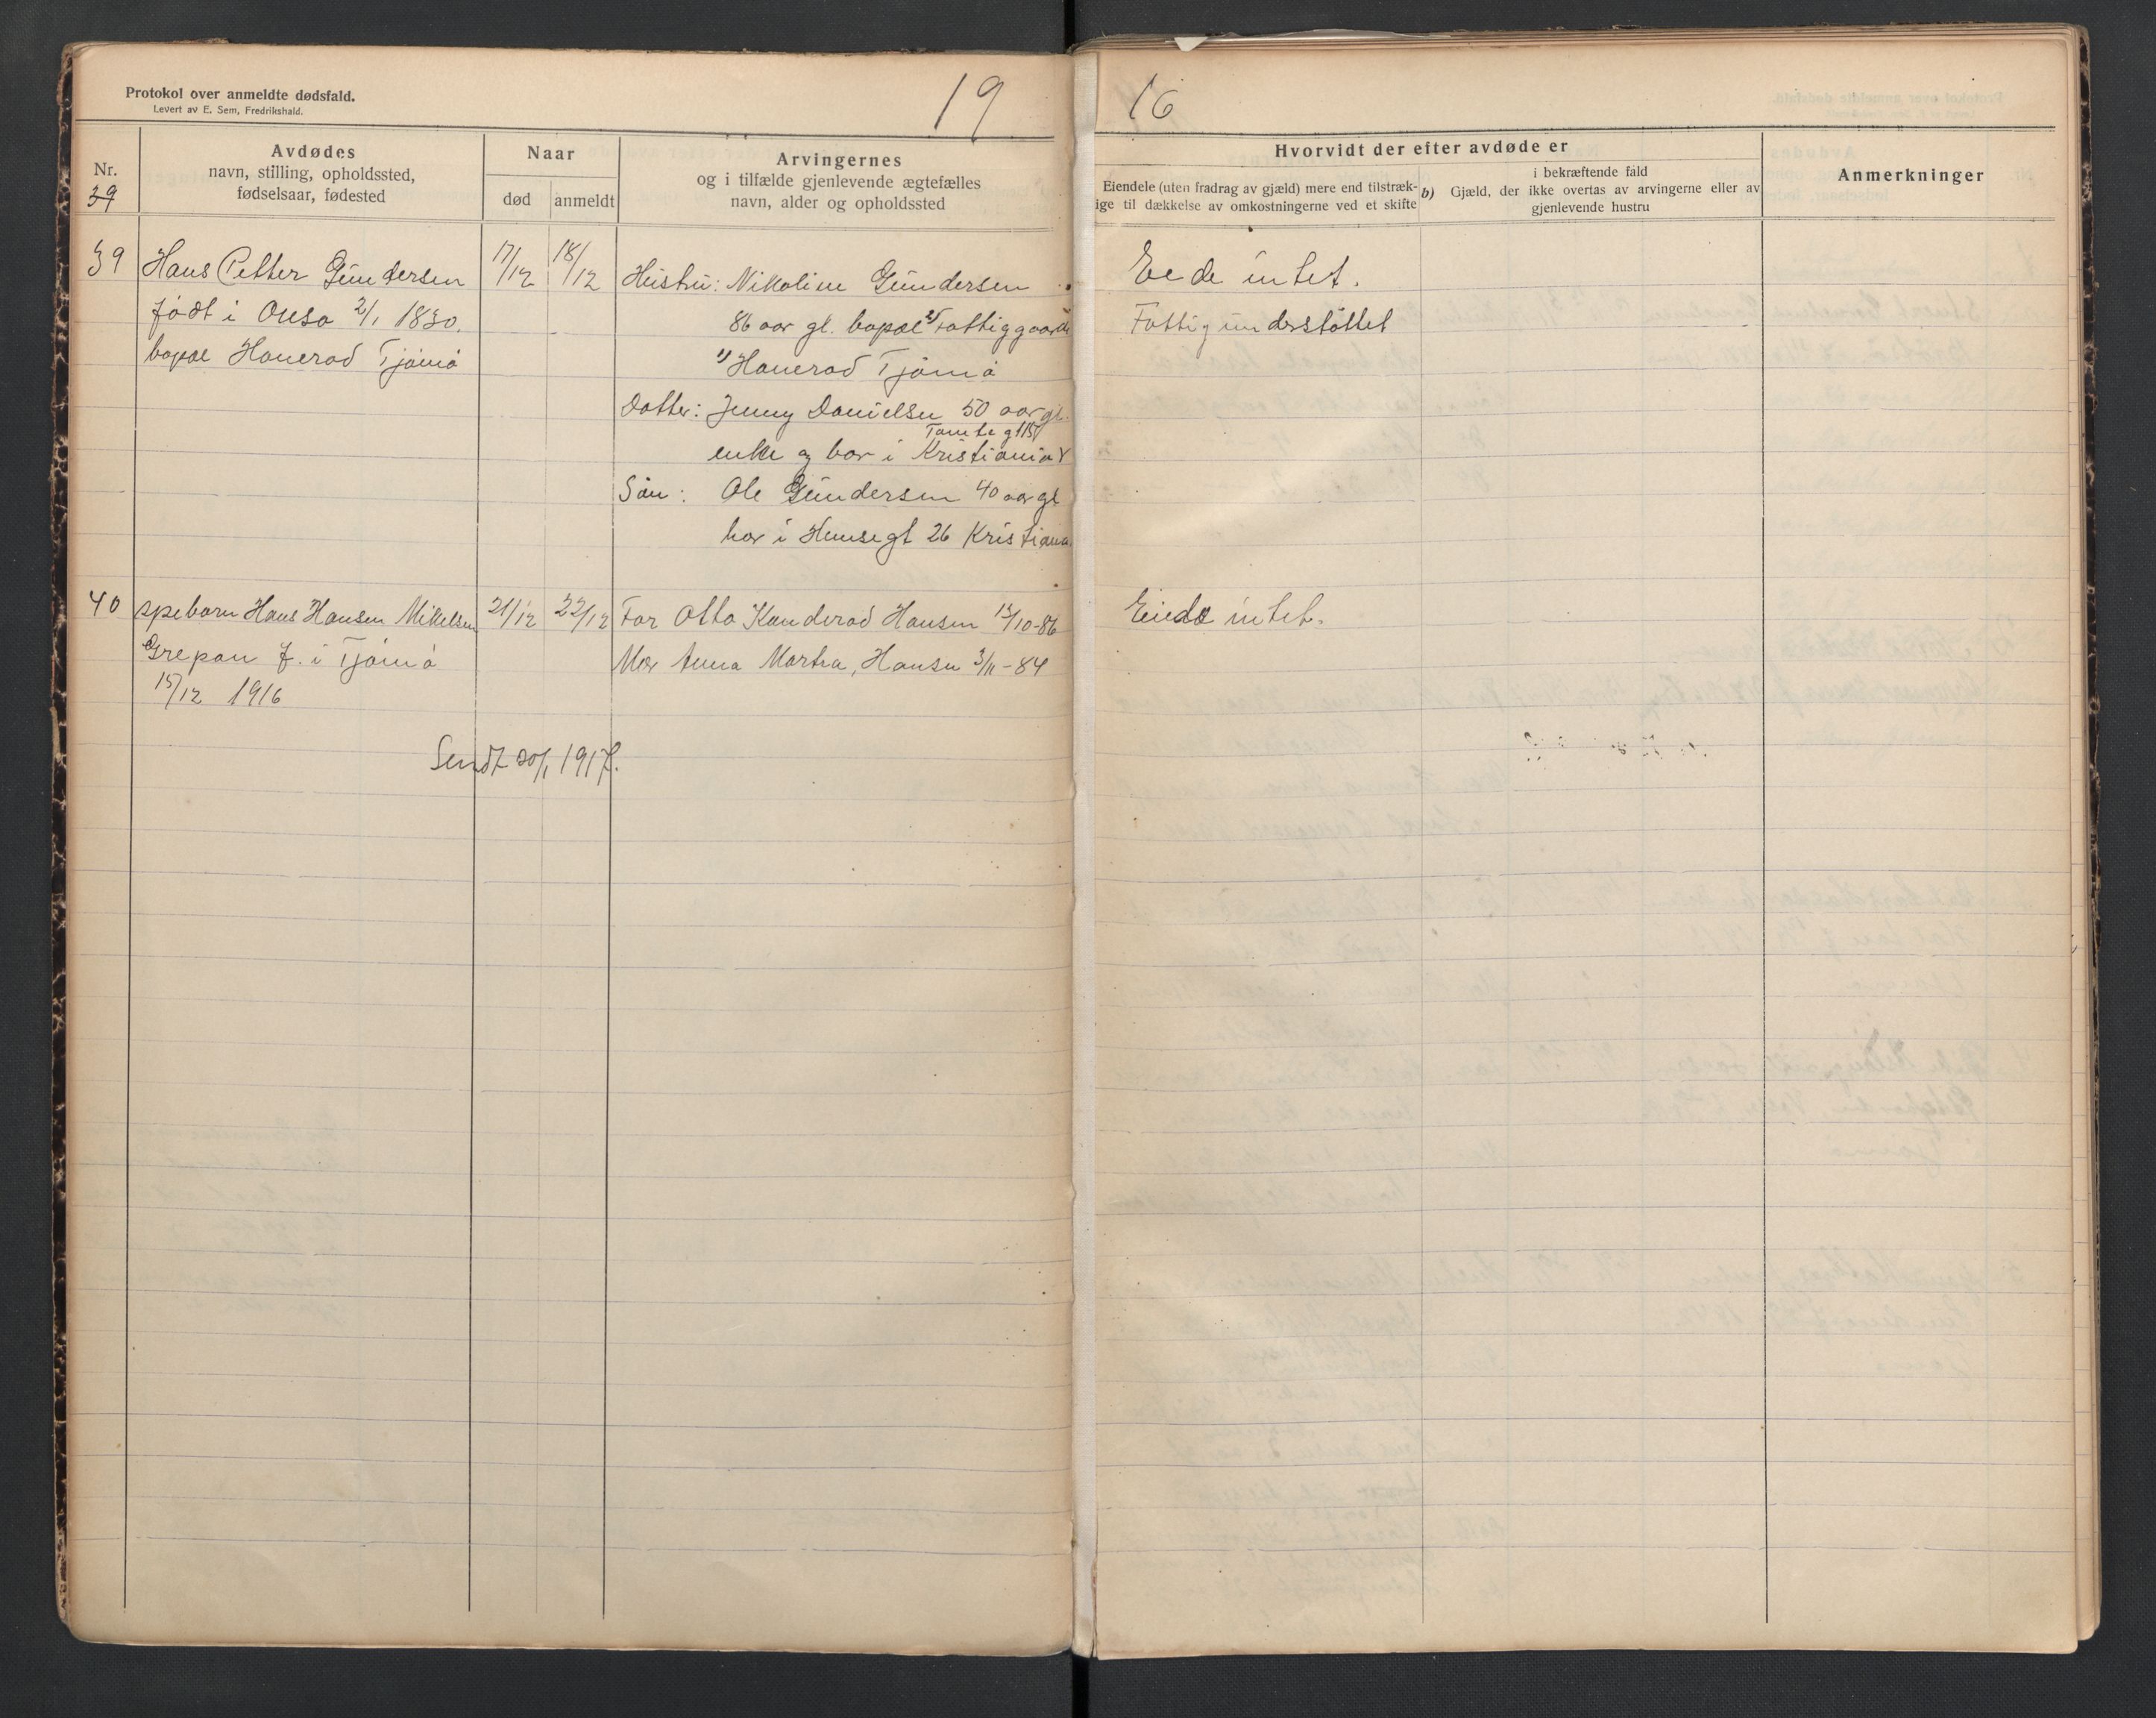 Protokol over anmeldte dødsfald.
Levert av E. Sem, Fredrikshald.
19
16
Nr.
39
Avdødes
navn, stilling, opholdssted,
fødselsaar, fødested
Naar
død
anmeldt
Arvingernes
og i tilfælde gjenlevende ægtefælles
navn, alder og opholdssted
Hvorvidt der efter avdøde er
Eiendele (uten fradrag av gjæld) mere end tilstræk-
ige til dækkelse av omkostningerne ved et skifte
i bekræftende fald
b) Gjæld, der ikke overtas av arvingerne eller av
gjenlevende hustru
Anmerkninger
39
Hans Petter Gundersen
født i Onsø 2/1 1830.
bopæl Honerød Tjømø
17/12
18/12
Hustru: Nikoline Gundersen
86 aar gl. bopæl 2) Fattiggaard
1) Honerød Tjømø
Datter: Jenny Danielsen 50 aar gl.
Tomtegt 15
enke og bor i Kristiania
Søn: Ole Gundersen 40 aar gl
bor i Hensegt 26 Kristiania.
Eede intet.
Fattigunderstøttet
40
spebarn Hans Hansen Mikelsen
Grepan f. i Tjømø
15/12 1916
21/12
22/12
Far Otto Kanderod Hansen 15/10-86
Mor Anna Marta, Hansen 3/11-84
Eiede intet.
Sendt 20/1 1917.